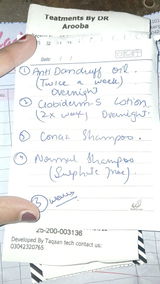 Teatments By DR
Arooba
Date:
① Anti Dandruff oil.
(Twice a week)
Overnight
② Clobiderm-S Lotion
(2x week) Overnight.
③ Conaz Shampoo.
④ Normal Shampoo
(Sulphate free)
③ weeks
25-200-003136
Developed By Taqaan tech contact us:
03042320765